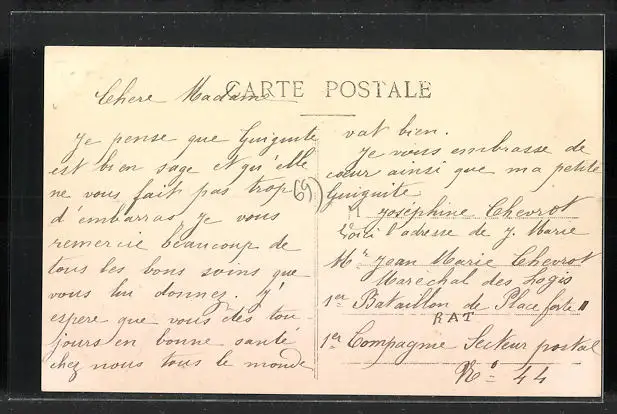 CARTE POSTALE
Chere Madame
Je pense que Guiguite
est bien sage et qu'elle
ne vous fait pas trop
d'embarras, je vous
remercie beaucoup de
tous les bons soins que
vous lui donnez, J'
espere que vous êtes tou
jours en bonne santé
chez nous tous le monde
69)
vat bien.
Je vous embrasse de
cœur ainsi que ma petite
Guiguite
Joséphine Chevrot
Voici l'adresse de J. Marie
Mr Jean Marie Chevrot
Marechal des Logis
1er Bataillon de Place forte
R.A.T
1er Compagnie Secteur postal
No 44